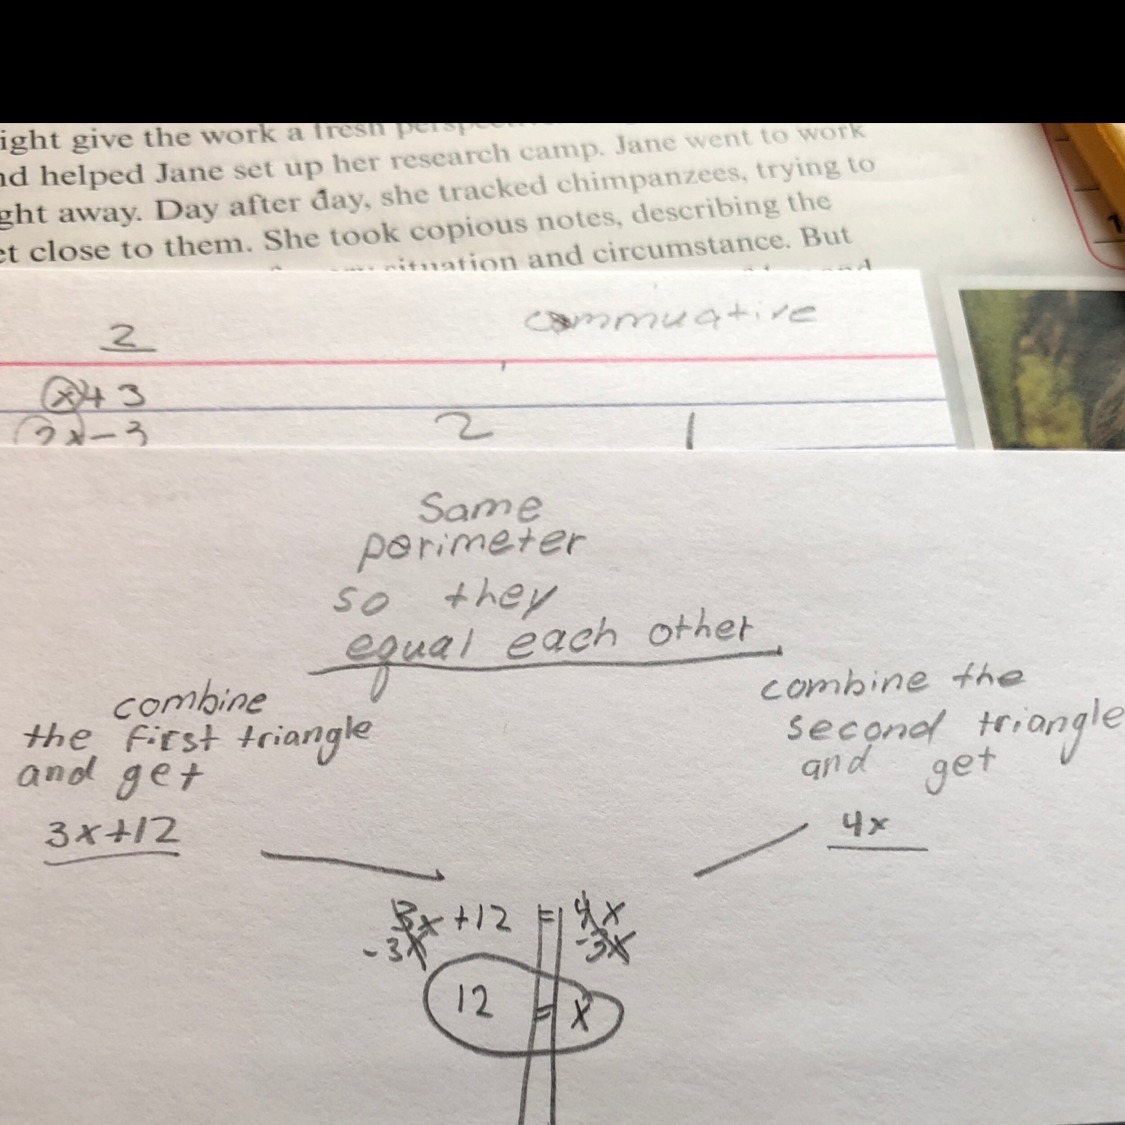 ight give the work a fresh
nd helped Jane set up her research camp. Jane went to work
ght away. Day after day, she tracked chimpanzees, trying to
et close to them. She took copious notes, describing the
situation and circumstance. But
2
commuative
x+3
2x-3
2 1
Same
perimeter
so they
equal each other
combine
the first triangle
and get
3x+12
combine the
second triangle
and get
4x
3x+12 = 4x
-3x -3x
12 = x